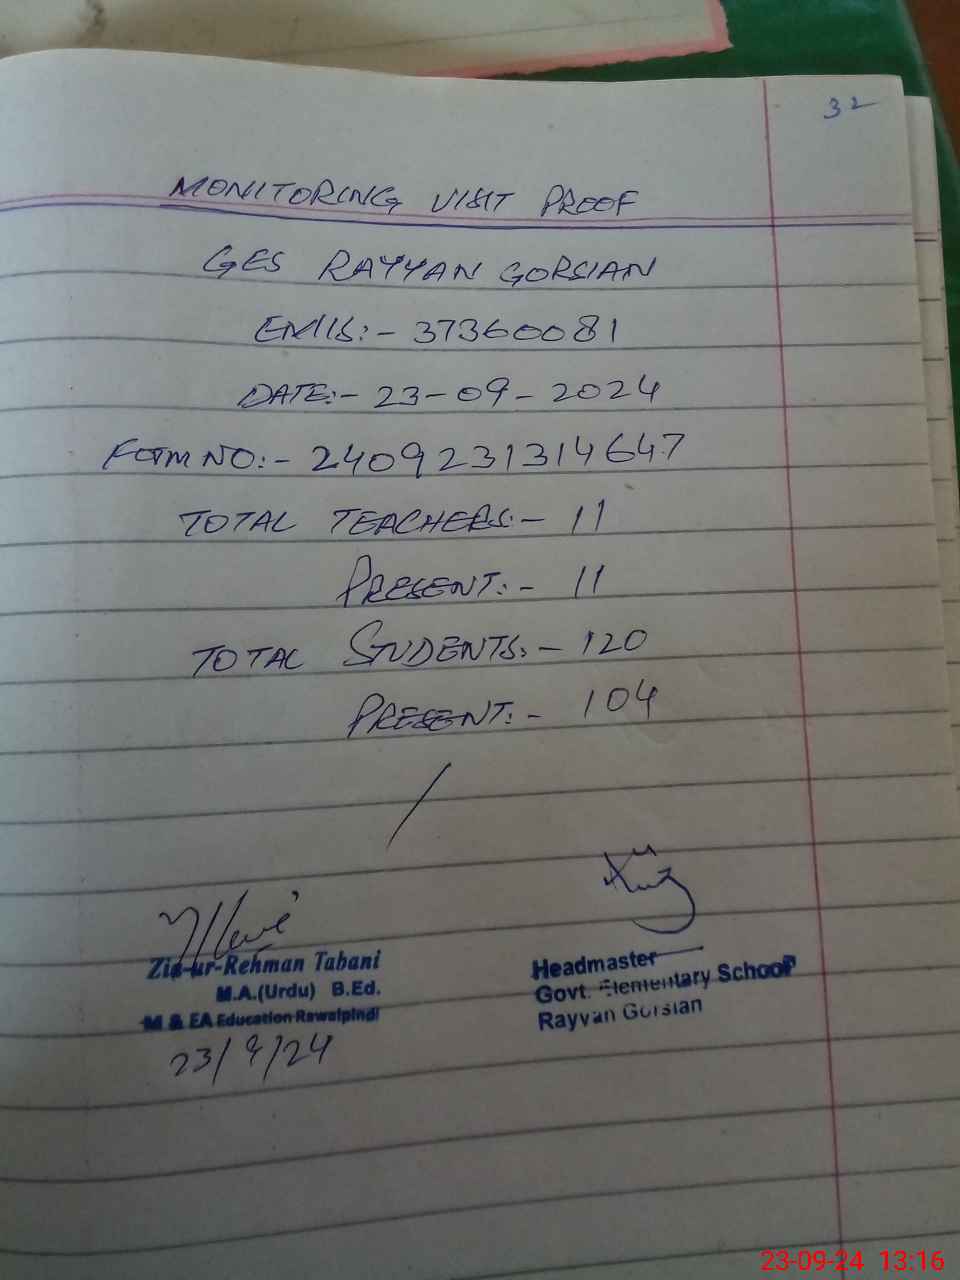 32
MONITORING VISIT PROOF
GES RAYYAN GORSIAN
EMIS:- 37360081
DATE:- 23-09-2024
FORM NO:- 2409231314647
TOTAL TEACHERS:- 11
PRESENT:- 11
TOTAL STUDENTS:- 120
PRESENT:- 104
Zia-ur-Rehman Tabani
M.A.(Urdu) B.Ed.
M & EA Education Rawalpindi
23/9/24
Headmaster
Govt. Elementary School
Rayyan Gorsian
23-09-24 13:16